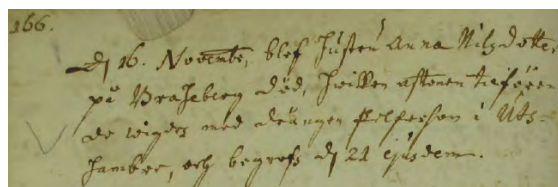 166.
Dj 16. Novemb:, blef hustru Anna Nilzdotter
på Braheberg död, hvilken aftonen tillförene
de vigdes med drängen Pelperson i Uts-
hambre, och begrofs dj 21 ejusdem.